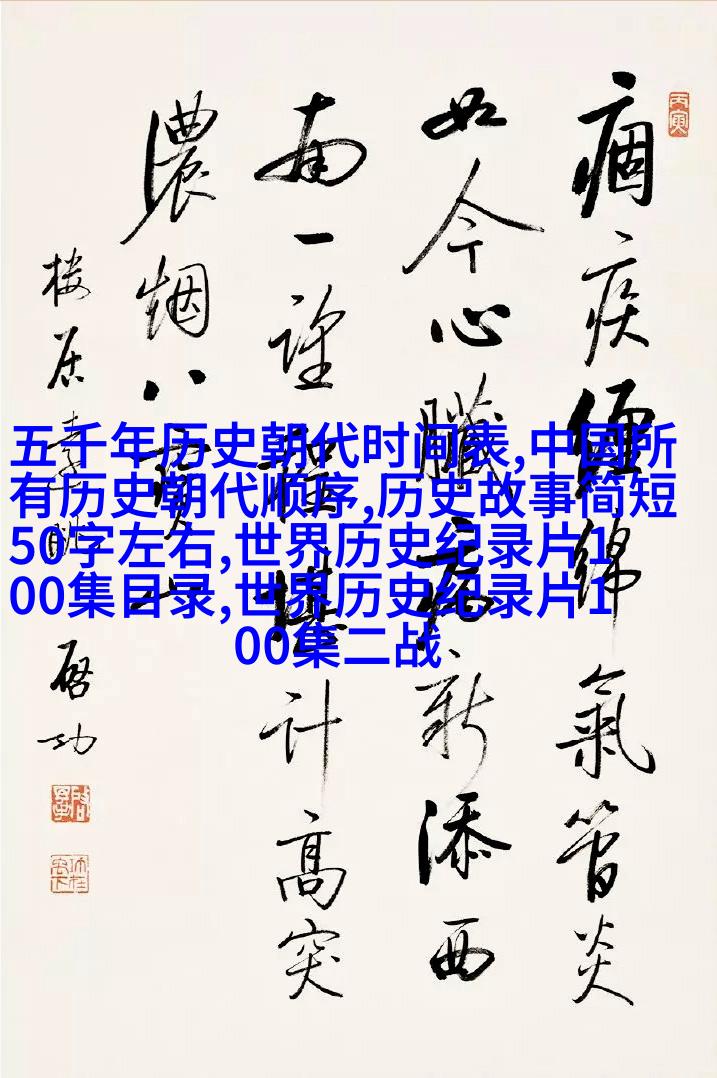 丙寅
痼疾纏綿氣管炎
如今心臟病新添西
南一望程堪計高突
濃烟八寶山
楼居
啓功
五千年历史朝代时间表,中国所
有历史朝代顺序,历史故事简短
50字左右,世界历史纪录片1
00集目录,世界历史纪录片1
00集二战